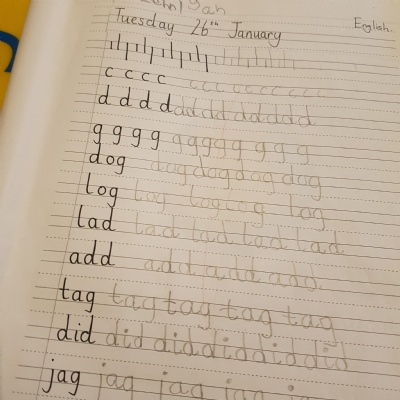 English.
Tuesday 26th January
c c c c c c c c c c c c
d d d d d d d d d d d d
g g g g g g g g g g g g
dog dog dog dog dog
log log log log
lad lad lad lad lad
add add add add
tag tag tag tag tag
did did did did did did
jag jag jag jag